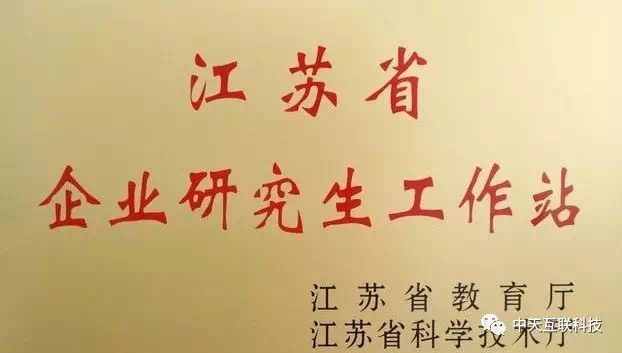 江苏省
企业研究生工作站
江苏省教育厅
江苏省科学技术厅
中天互联科技